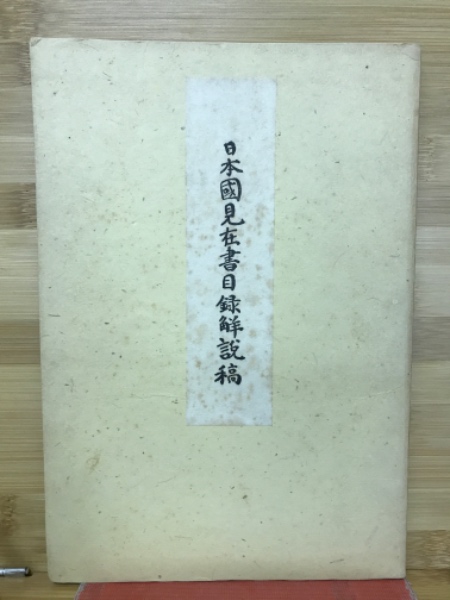 日本國見在書目録解説稿